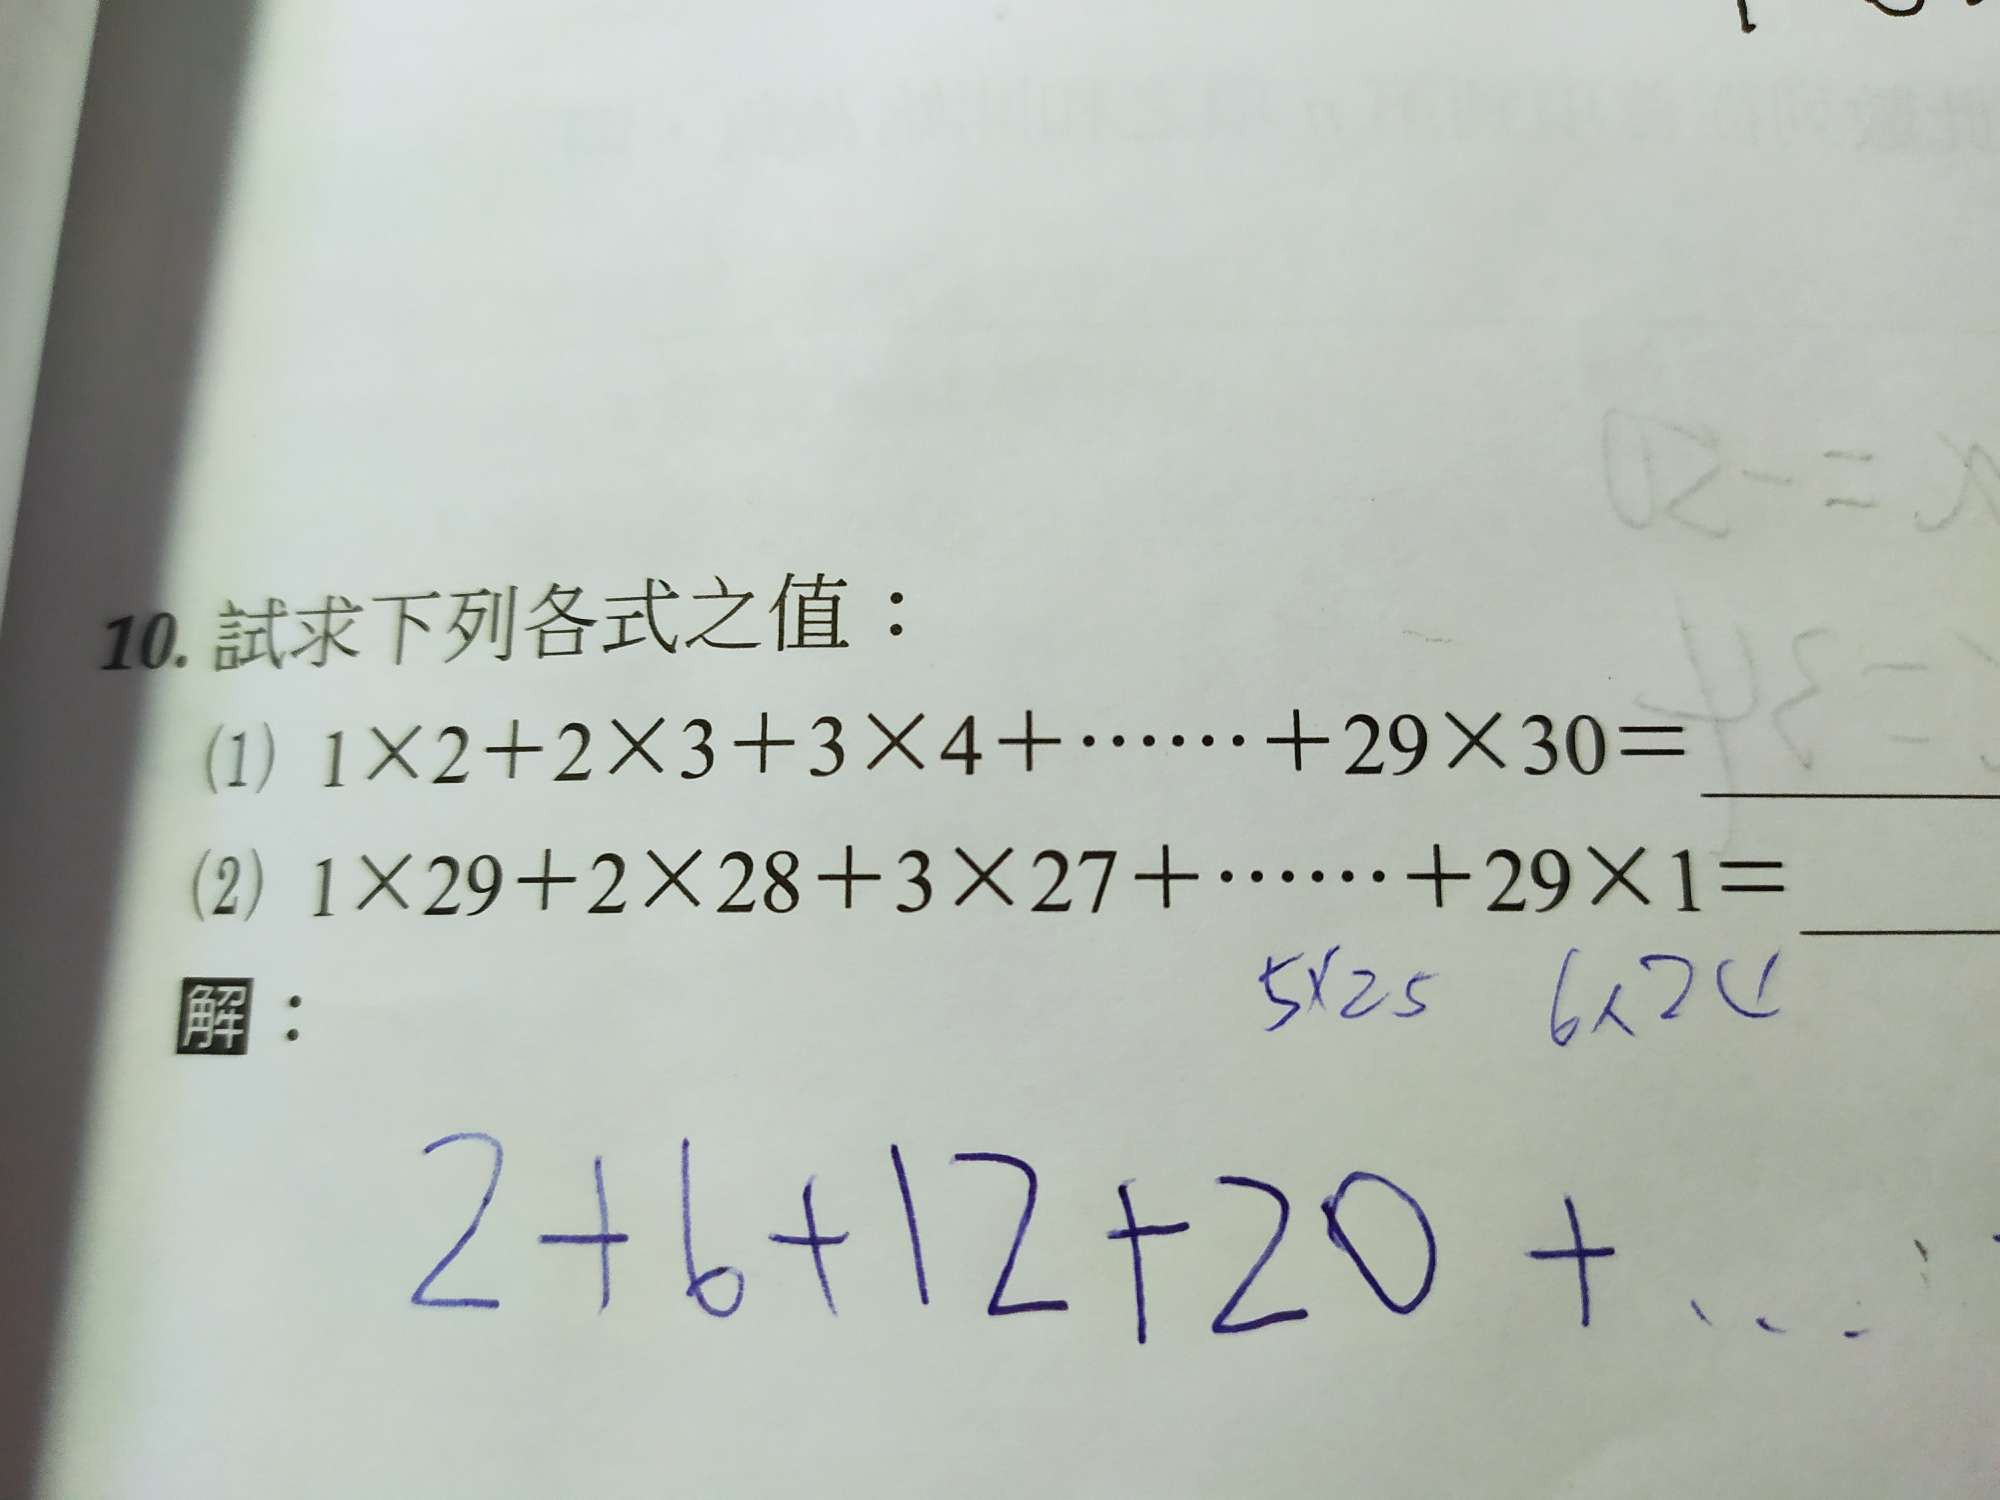 10. 試求下列各式之值：
(1) 1×2+2×3+3×4+……+29×30=
(2) 1×29+2×28+3×27+……+29×1=
5×25 6×24
解：
2+6+12+20+...